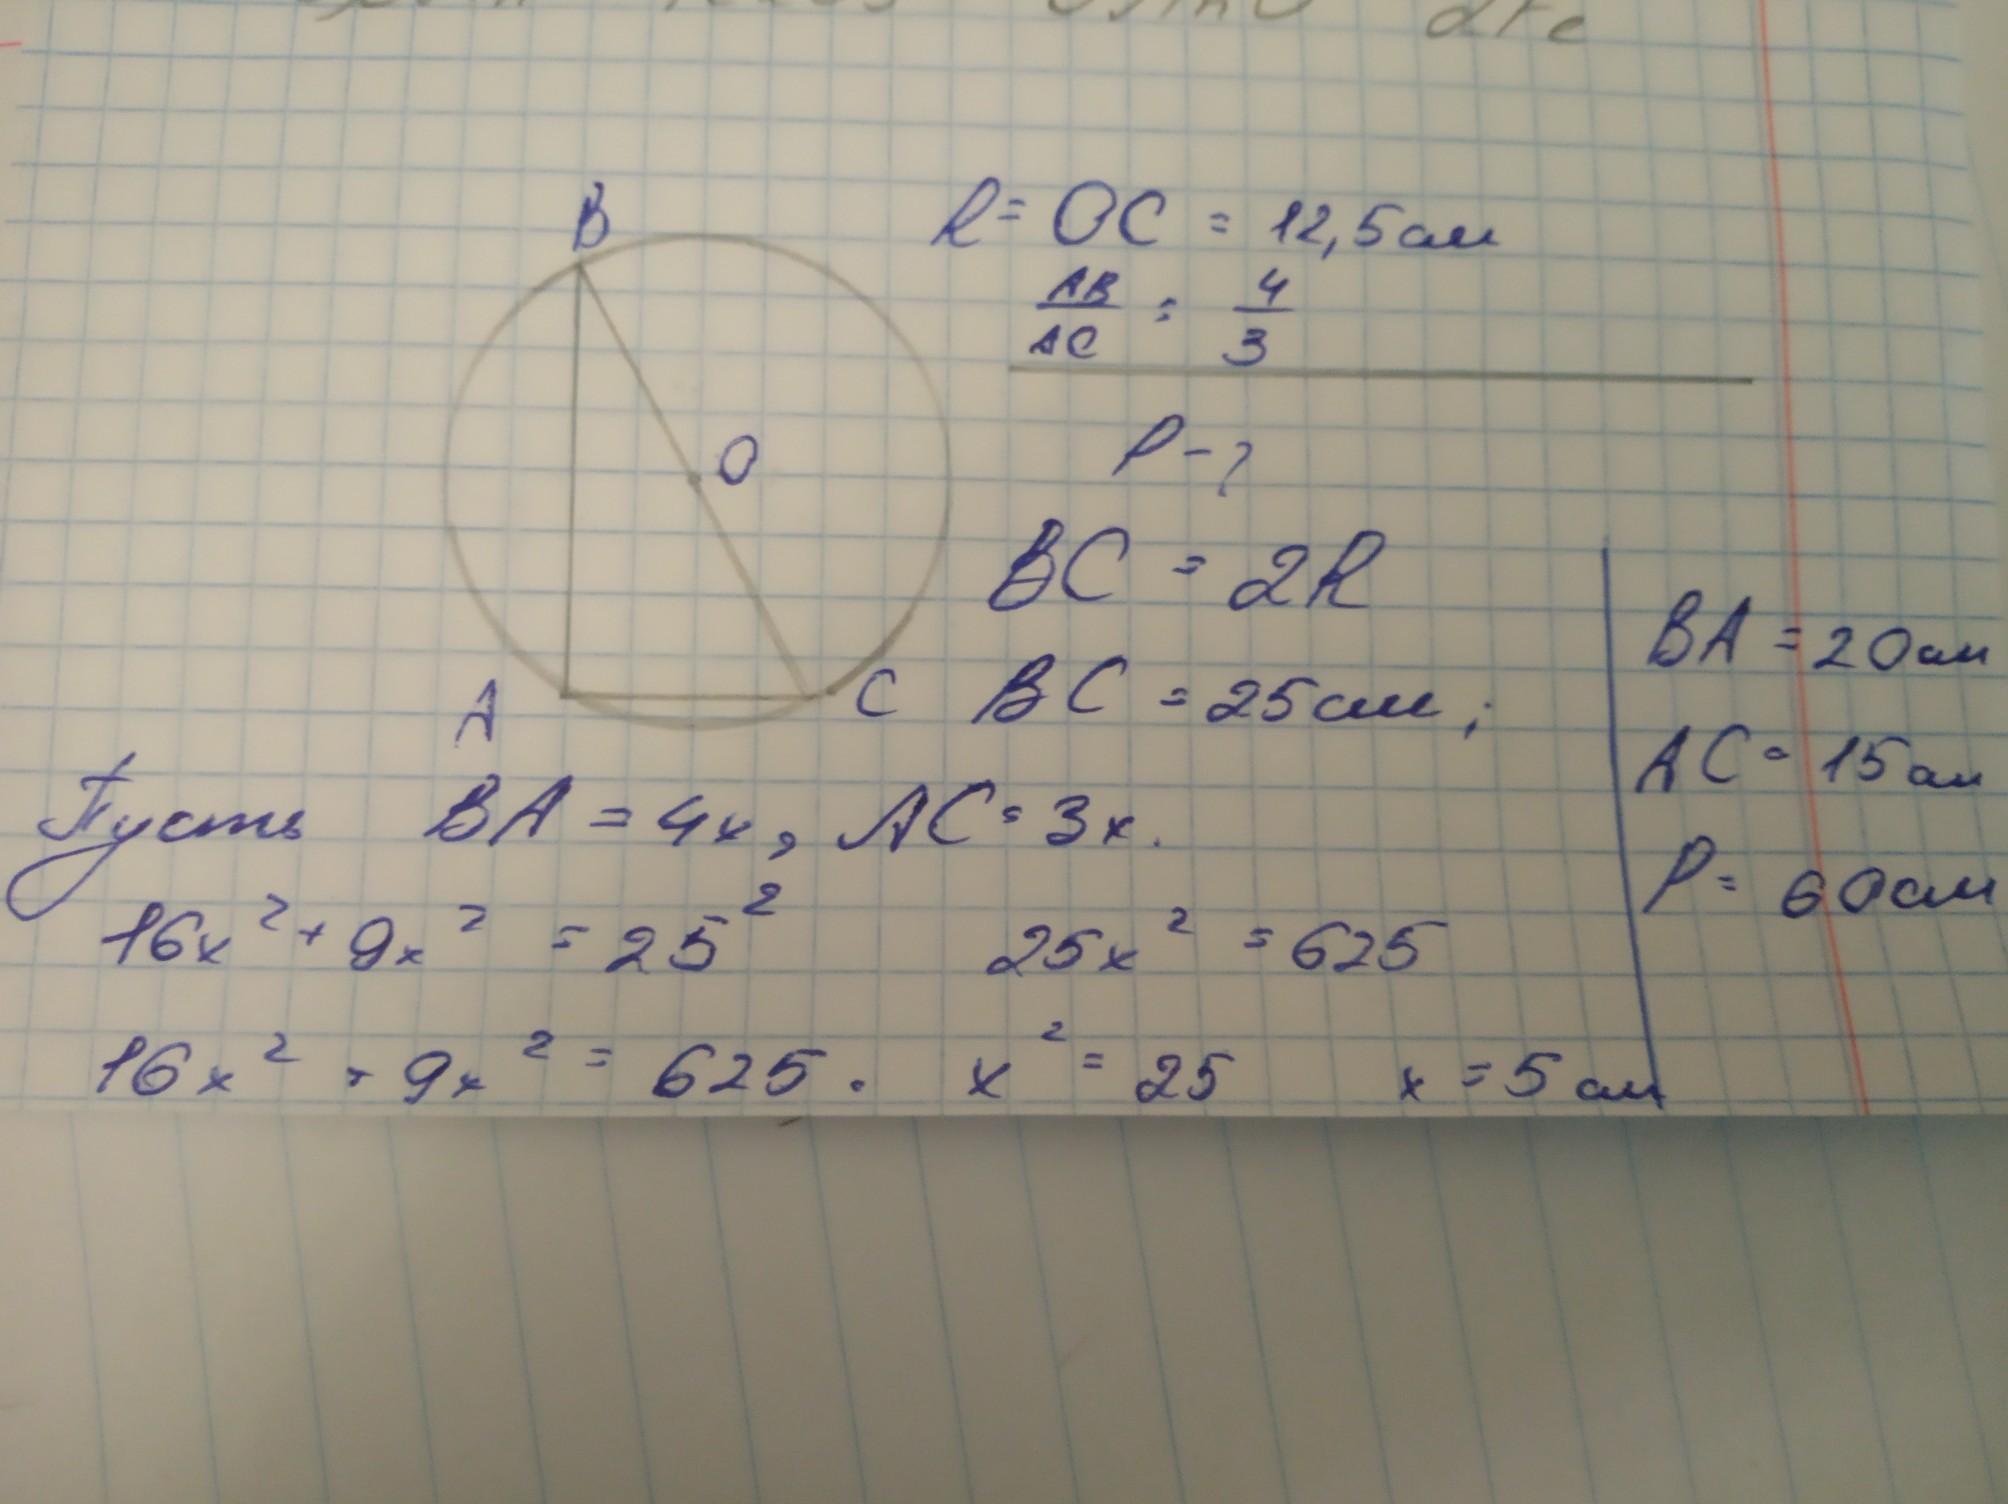 B
R = OC = 12,5 см
AB/AC = 4/3
O
P - ?
BC = 2R
A
C
BC = 25 см;
Пусть BA = 4x, AC = 3x.
16x² + 9x² = 25²
25x² = 625
16x² + 9x² = 625.
x² = 25
x = 5 см
BA = 20 см
AC = 15 см
P = 60 см